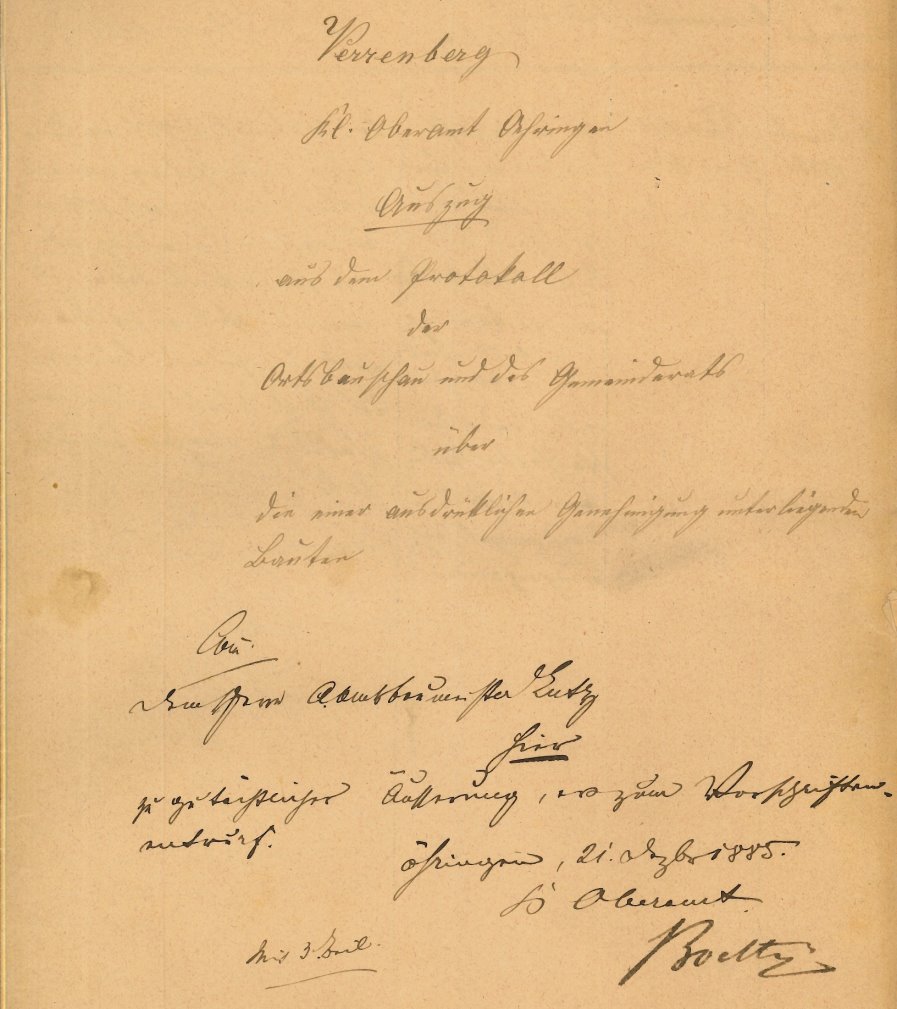 Verrenberg
Kl. Oberamt Oehringen
Auszug
aus dem Protokoll
der
Ortsbauschau und des Gemeinderats
über
die einer ausdrüklichen Genehmigung unterliegenden
Bauten
dem Herrn Oberamtsbaumeister
hier
zu gutächtlicher Äusserung, ev. zum Vorschriften-
entwurf.
Öhringen, 21. Dezbr 1885.
K Oberamt
Mit 3 Beil.